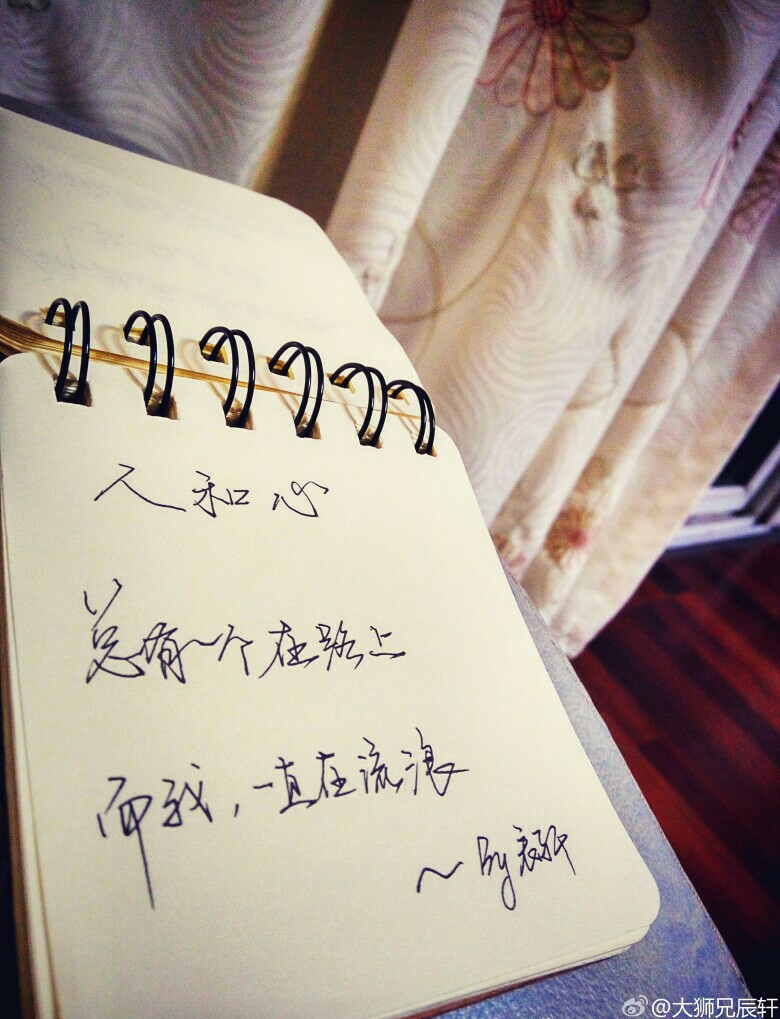 人和心
总有一个在路上
而我，一直在流浪
～by辰轩
@大狮兄辰轩